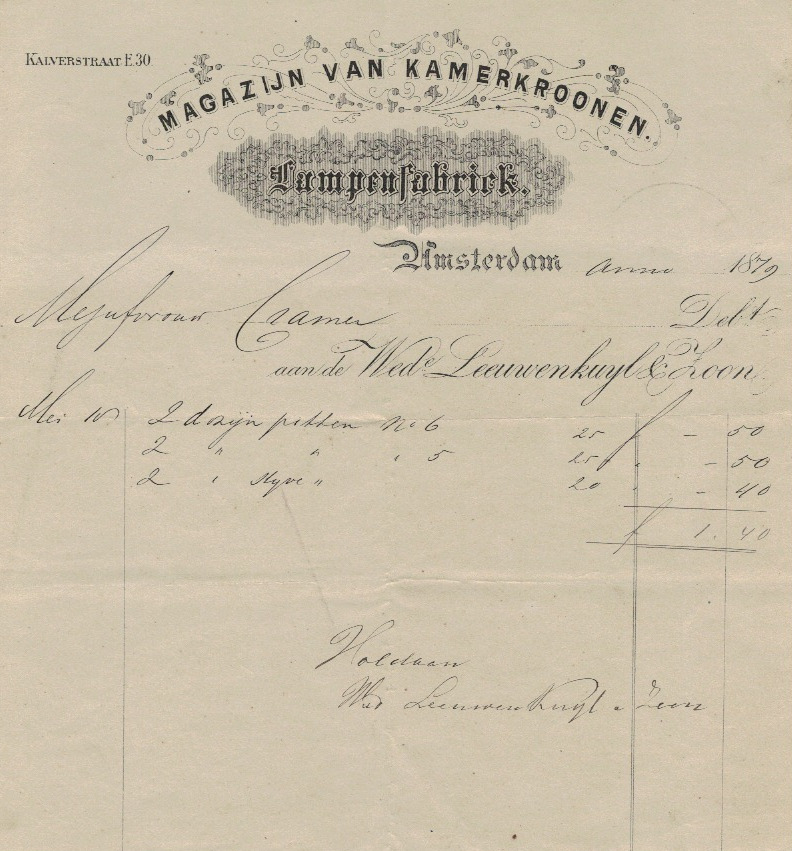 KALVERSTRAAT E.30.
MAGAZIJN VAN KAMERKROONEN.
Lampenfabriek.
Amsterdam anno 1879
Mejufvrouw Cramer Debt
aan de Wede Leeuwenkuyl & Zoon
Mei 10 2 dozijn pitten No 6 25 f - 50
2 " " " 5 25 " - 50
2 " Styve " 20 " - 40
f 1.40
Voldaan
Wed Leeuwenkuyl & Zoon